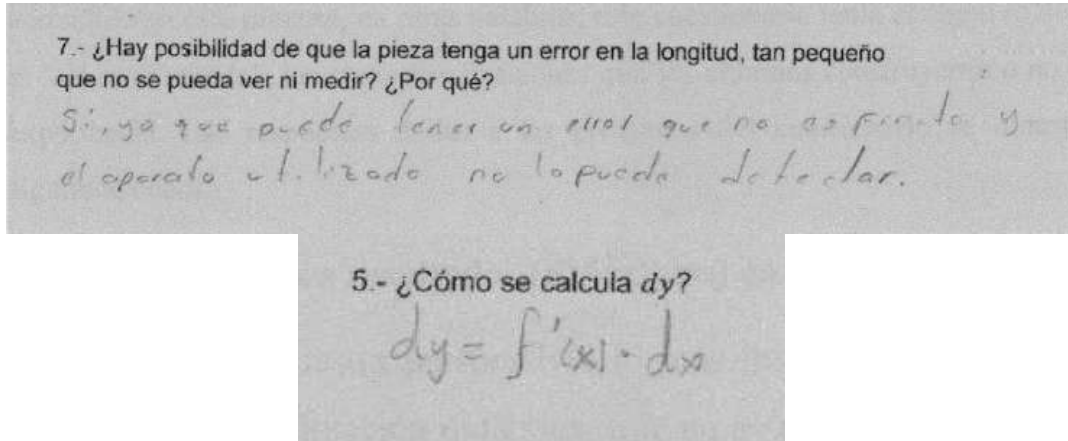 7.- ¿Hay posibilidad de que la pieza tenga un error en la longitud, tan pequeño
que no se pueda ver ni medir? ¿Por qué?
Si, ya que puede tener un error que no es finito y
el aparato utilizado no lo puede detectar.
5.- ¿Cómo se calcula dy?
dy = f'(x) · dx